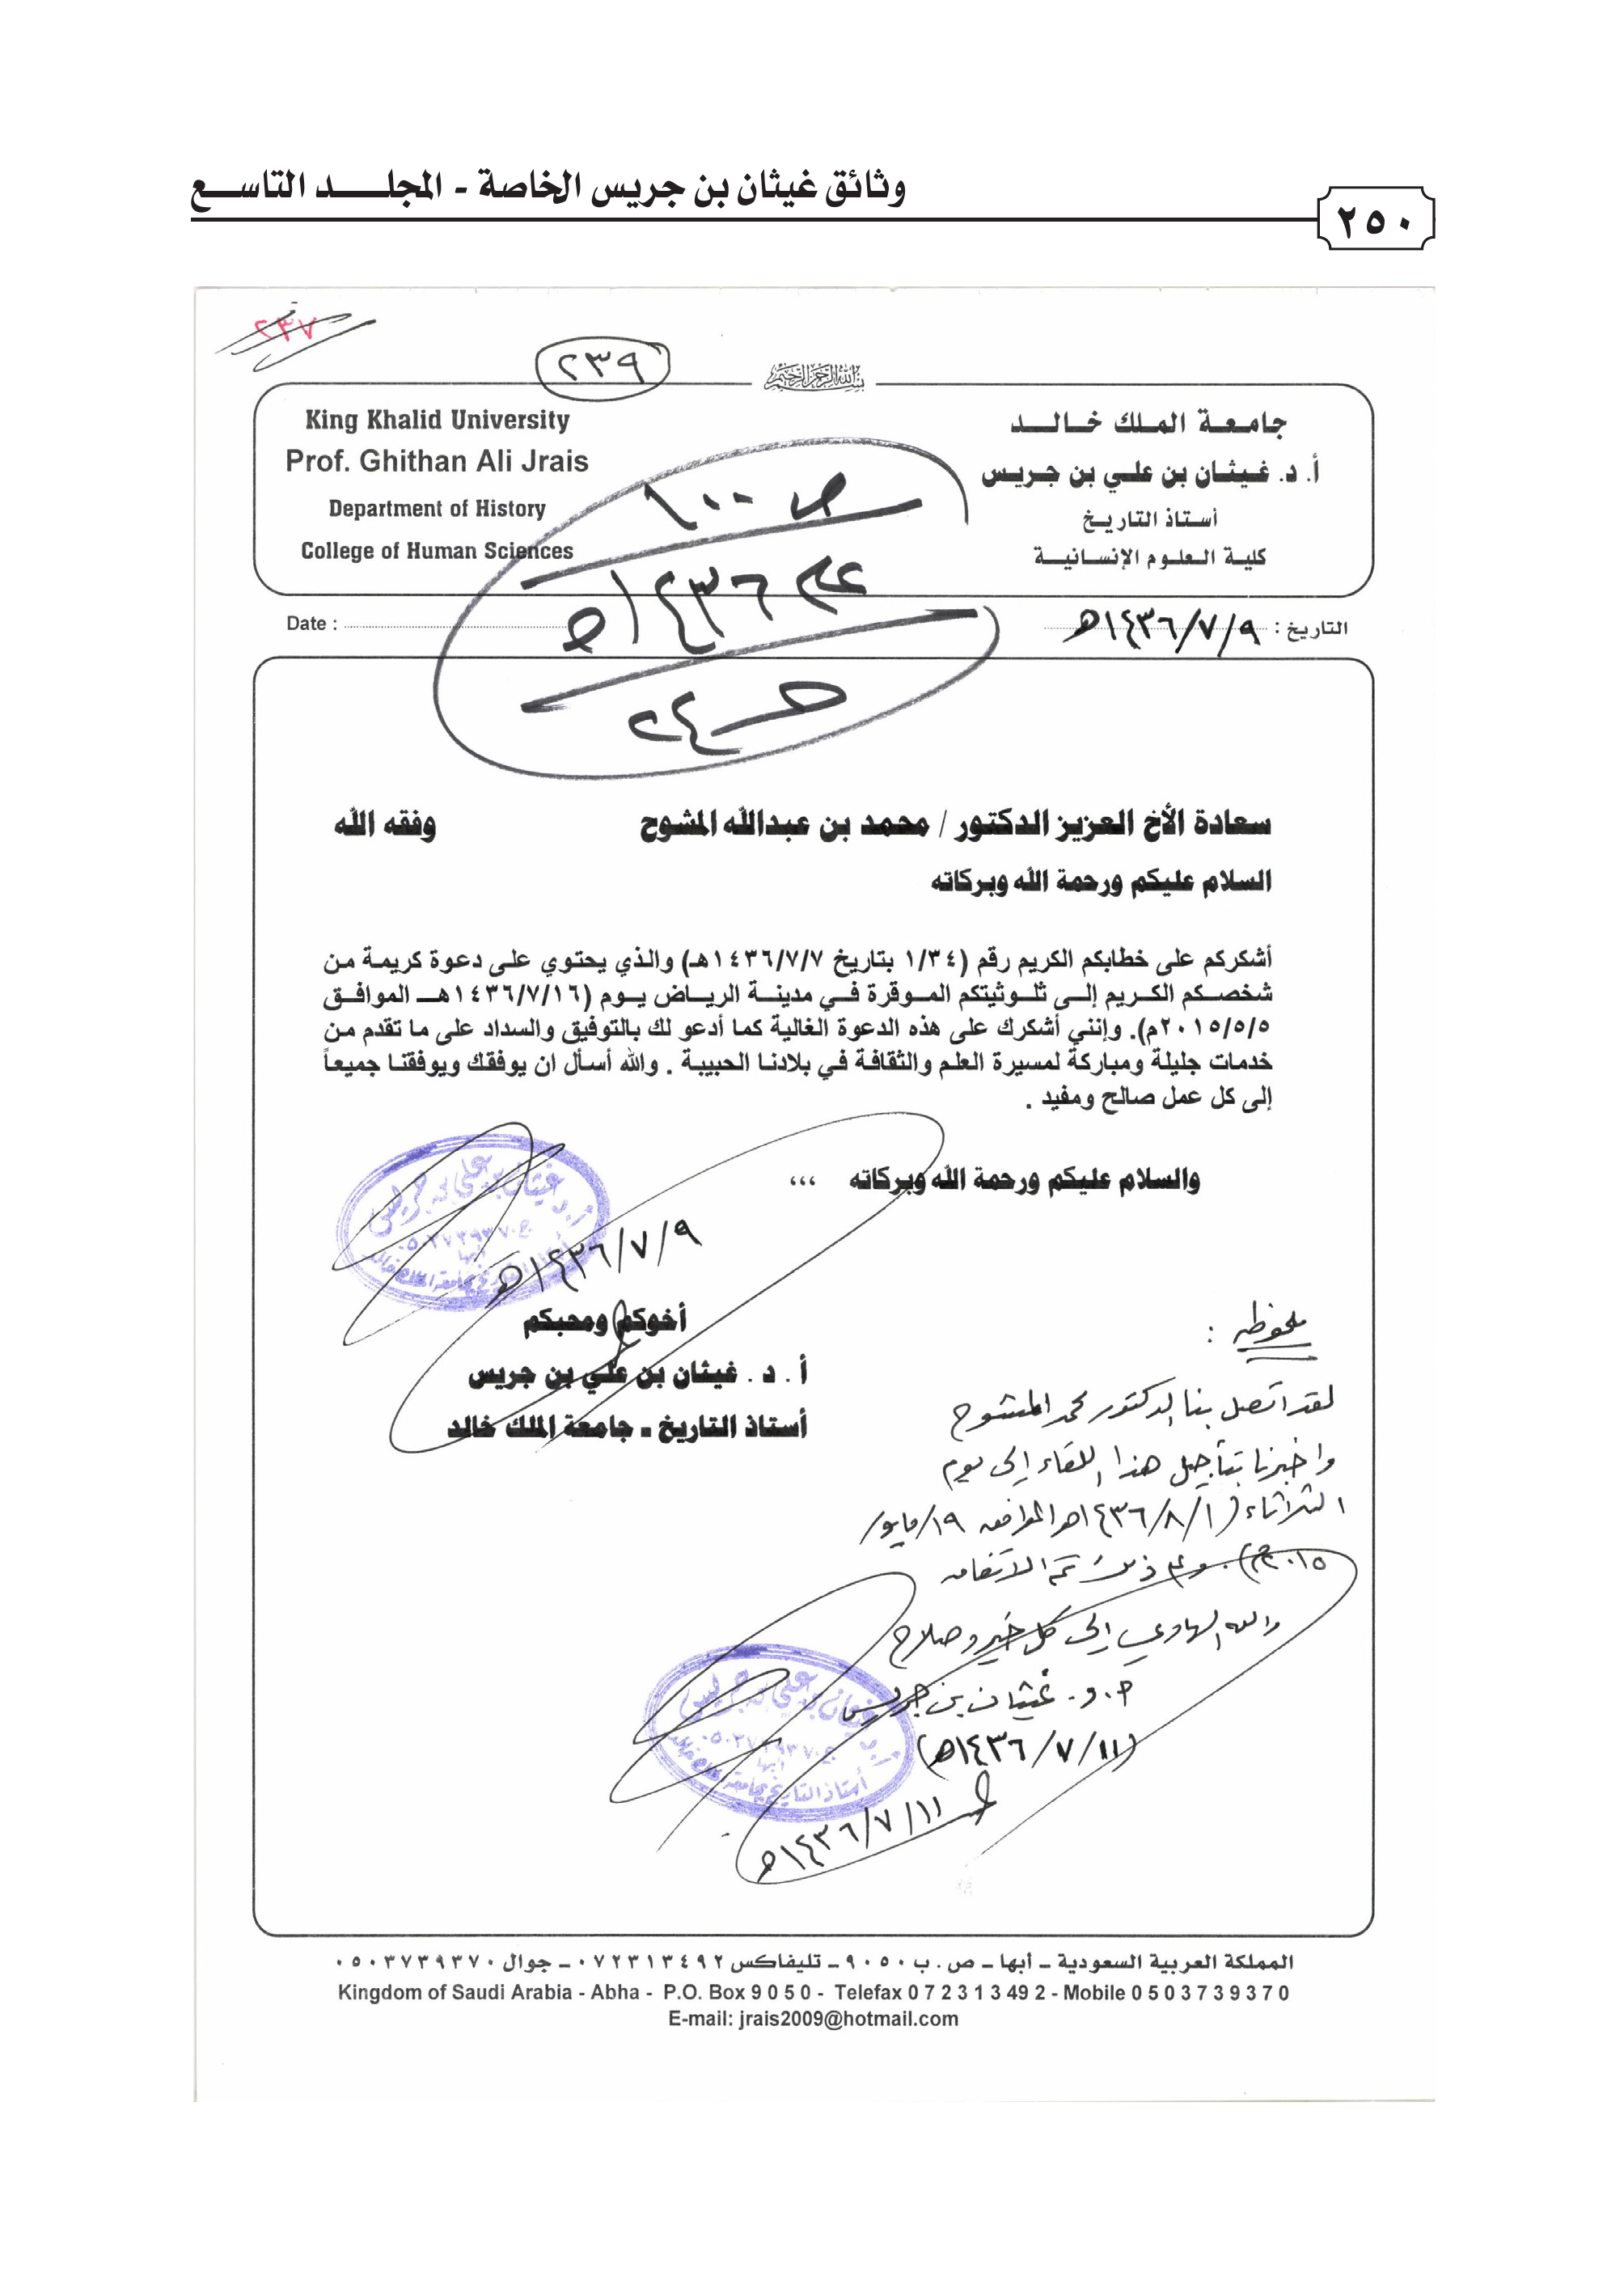 وثائق غيثان بن جريس الخاصة - المجلد التاسع
٢٥٠
٢٣٧
٢٣٩
بسم الله الرحمن الرحيم
جامعة الملك خالد
أ. د. غيثان بن علي بن جريس
أستاذ التاريخ
كلية العلوم الإنسانية
King Khalid University
Prof. Ghithan Ali Jrais
Department of History
College of Human Sciences
ص ١٠٠
عام ١٤٣٦هـ
حـ ٢٤
التاريخ : ٩/٧/١٤٣٦هـ
Date :
سعادة الأخ العزيز الدكتور / محمد بن عبدالله المشوح وفقه الله
السلام عليكم ورحمة الله وبركاته
أشكركم على خطابكم الكريم رقم (١/٣٤ بتاريخ ١٤٣٦/٧/٧هـ) والذي يحتوي على دعوة كريمة من
شخصكم الكريم إلى ثلوثيتكم الموقرة في مدينة الرياض يوم (١٤٣٦/٧/١٦هـ الموافق
٢٠١٥/٥/٥م). وإنني أشكرك على هذه الدعوة الغالية كما أدعو لك بالتوفيق والسداد على ما تقدم من
خدمات جليلة ومباركة لمسيرة العلم والثقافة في بلادنا الحبيبة . والله أسأل ان يوفقك ويوفقنا جميعاً
إلى كل عمل صالح ومفيد .
والسلام عليكم ورحمة الله وبركاته ،،،
أ. د غيثان بن علي بن جريس
ج ٠٥٠٣٧٣٩٣٧٠
أبها
أستاذ التاريخ بجامعة الملك خالد
٩/٧/١٤٣٦هـ
أخوكم ومحبكم
أ . د . غيثان بن علي بن جريس
أستاذ التاريخ ـ جامعة الملك خالد
ملحوظة :
لقد اتصل بنا الدكتور محمد المشوح
واخبرنا بتأجيل هذا اللقاء إلى يوم
الثلاثاء (١/٨/١٤٣٦هـ الموافق ١٩/مايو/
٢٠١٥م). وعلى ذلك تم الاتفاق
والله الهادي إلى كل خير وصلاح
أ.د. غيثان بن جريس
(١١/٧/١٤٣٦هـ)
أ. د غيثان بن علي بن جريس
ج ٠٥٠٣٧٣٩٣٧٠
أبها
أستاذ التاريخ بجامعة الملك خالد
١١/٧/١٤٣٦هـ
المملكة العربية السعودية ـ أبها ـ ص . ب ٩٠٥٠ ـ تليفاكس ٠٧٢٣١٣٤٩٢ ـ جوال ٠٥٠٣٧٣٩٣٧٠
Kingdom of Saudi Arabia - Abha - P.O. Box 9 0 5 0 - Telefax 0 7 2 3 1 3 49 2 - Mobile 0 5 0 3 7 3 9 3 7 0
E-mail: jrais2009@hotmail.com